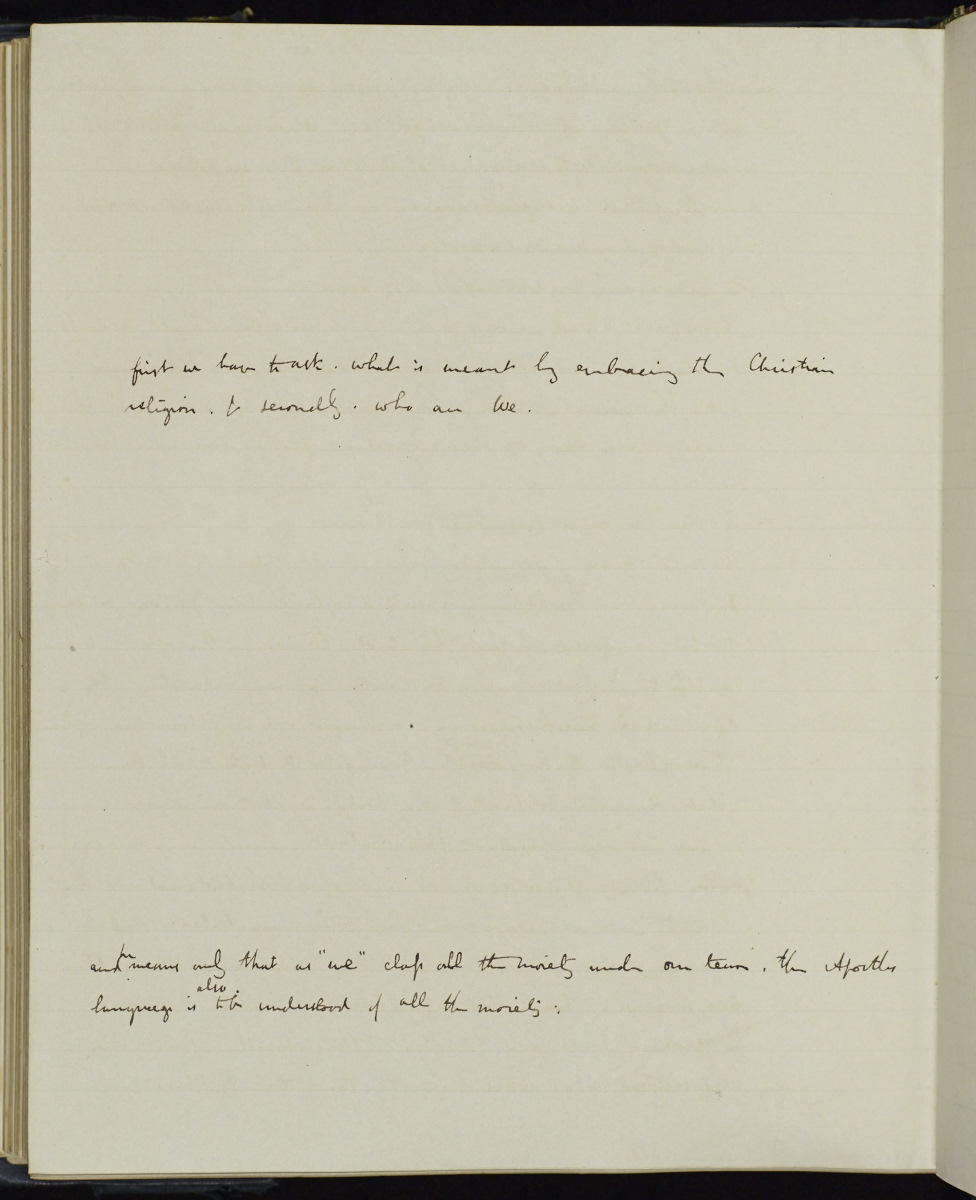 first we have to ask. what is meant by embracing the Christian
religion. & secondly. who are We.
and he means only that as "we" class all the moiety under one term, the Apostles
language is also to be understood of all the moiety: